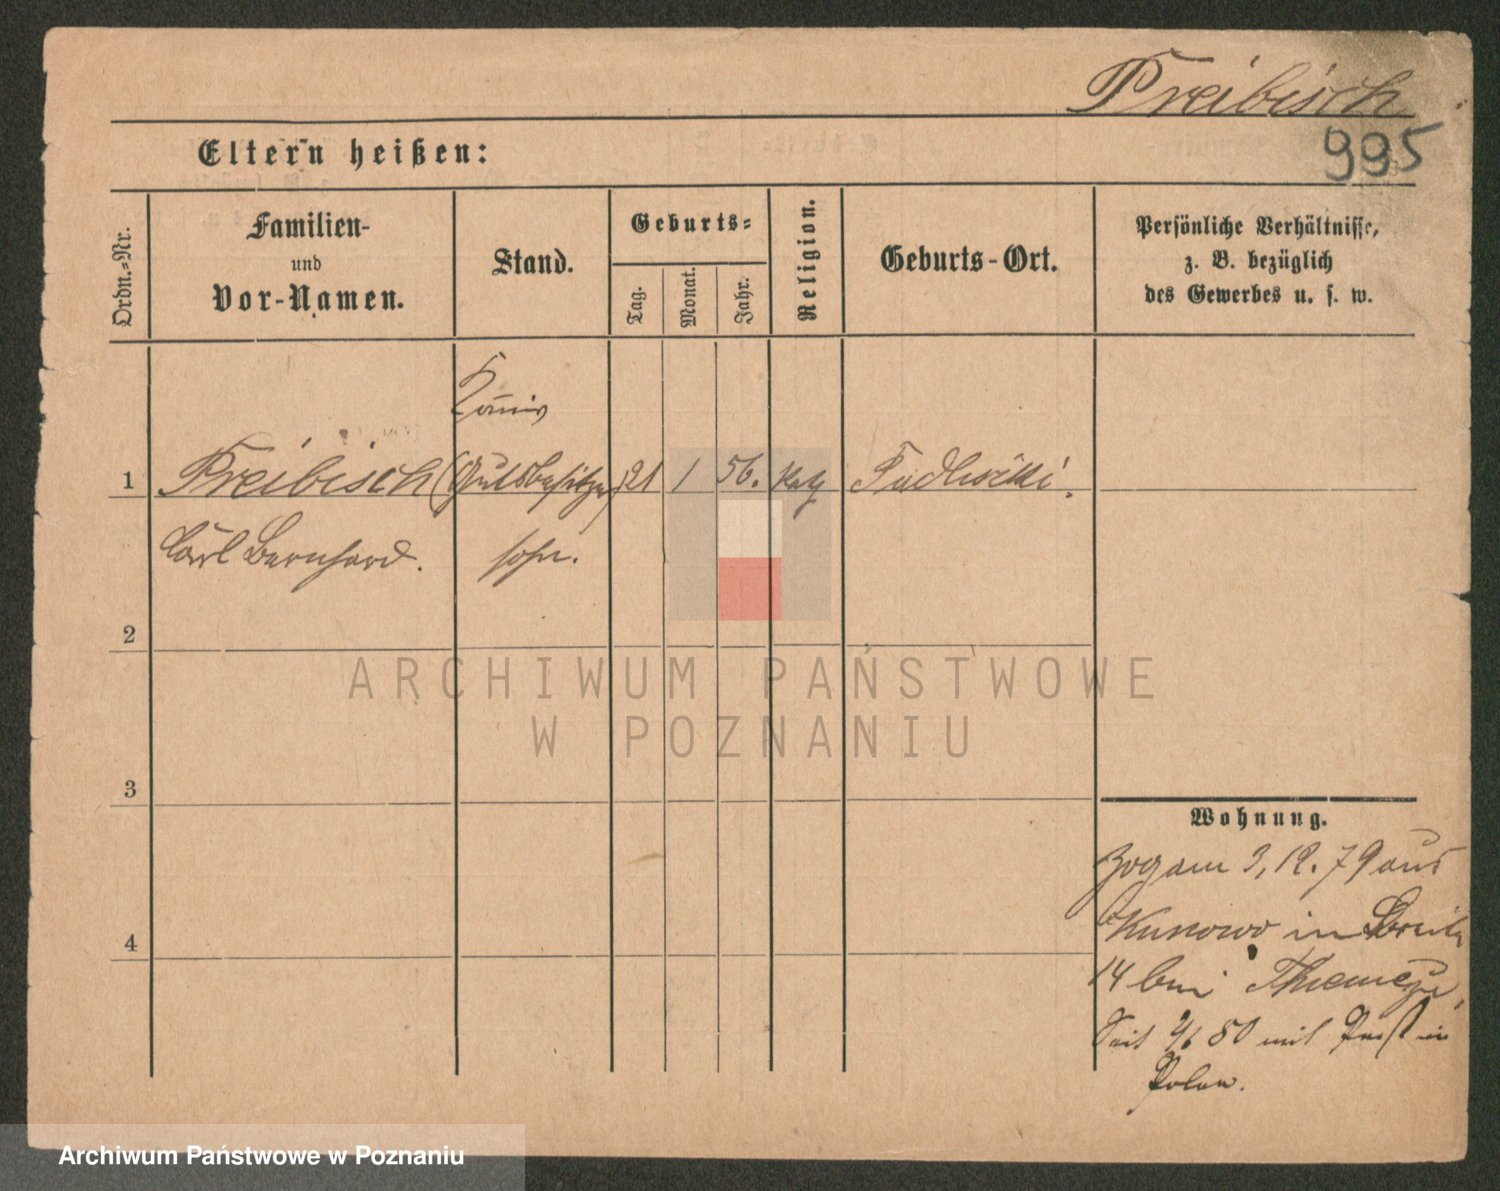 Preibisch
995
Eltern heißen:
Ordn.-Nr.
Familien-
und
Vor-Namen.
Stand.
Geburts-
Tag.
Monat.
Jahr.
Religion.
Geburts-Ort.
Persönliche Verhältnisse,
z. B. bezüglich
des Gewerbes u. s. w.
1 Preibisch (Gutsbesitzer) 21 1 56. Kath
Carl Bernhard. sohn.
2
3
4
Wohnung.
Zog am 3, 12. 79 aus
Kunowo in Breite
14 bei
Seit 2/6 80 mit Paß in
Polen.
ARCHIWUM PAŃSTWOWE
W POZNANIU
Archiwum Państwowe w Poznaniu